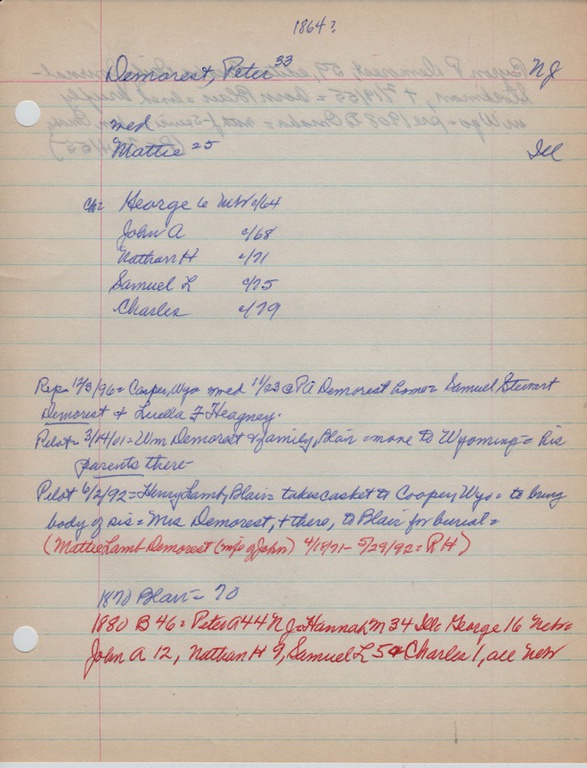 1864?
Demorest, Peter 33 NJ
med
Mattie 25 Ill
ch= George 6 Neb c/64
John A c/68
Nathan H c/71
Samuel L c/75
Charles c/79
Rep= 12/3/96= Casper, Wyo med 11/23 @ PA Demorest home= Samuel Stewart
Demorest + Luella F Heagney.
Pilot= 3/14/01= Wm Demorest & family, Blair =move to Wyoming= his
parents there-
Pilot 6/2/92= Henry Lamb, Blair= takes casket to Cooper, Wyo= to bring
body of sis= Mrs Demorest, + there, to Blair for burial=
(Mattie Lamb Demorest (wife of John) 4/19/71- 5/29/92= RH)
1870 Blair= 70
1880 B 46= Peter A 44 NJ= Hannah M 34 Ill= George 16 Nebr
John A 12, Nathan H 9, Samuel L 5 & Charles 1, all Neb